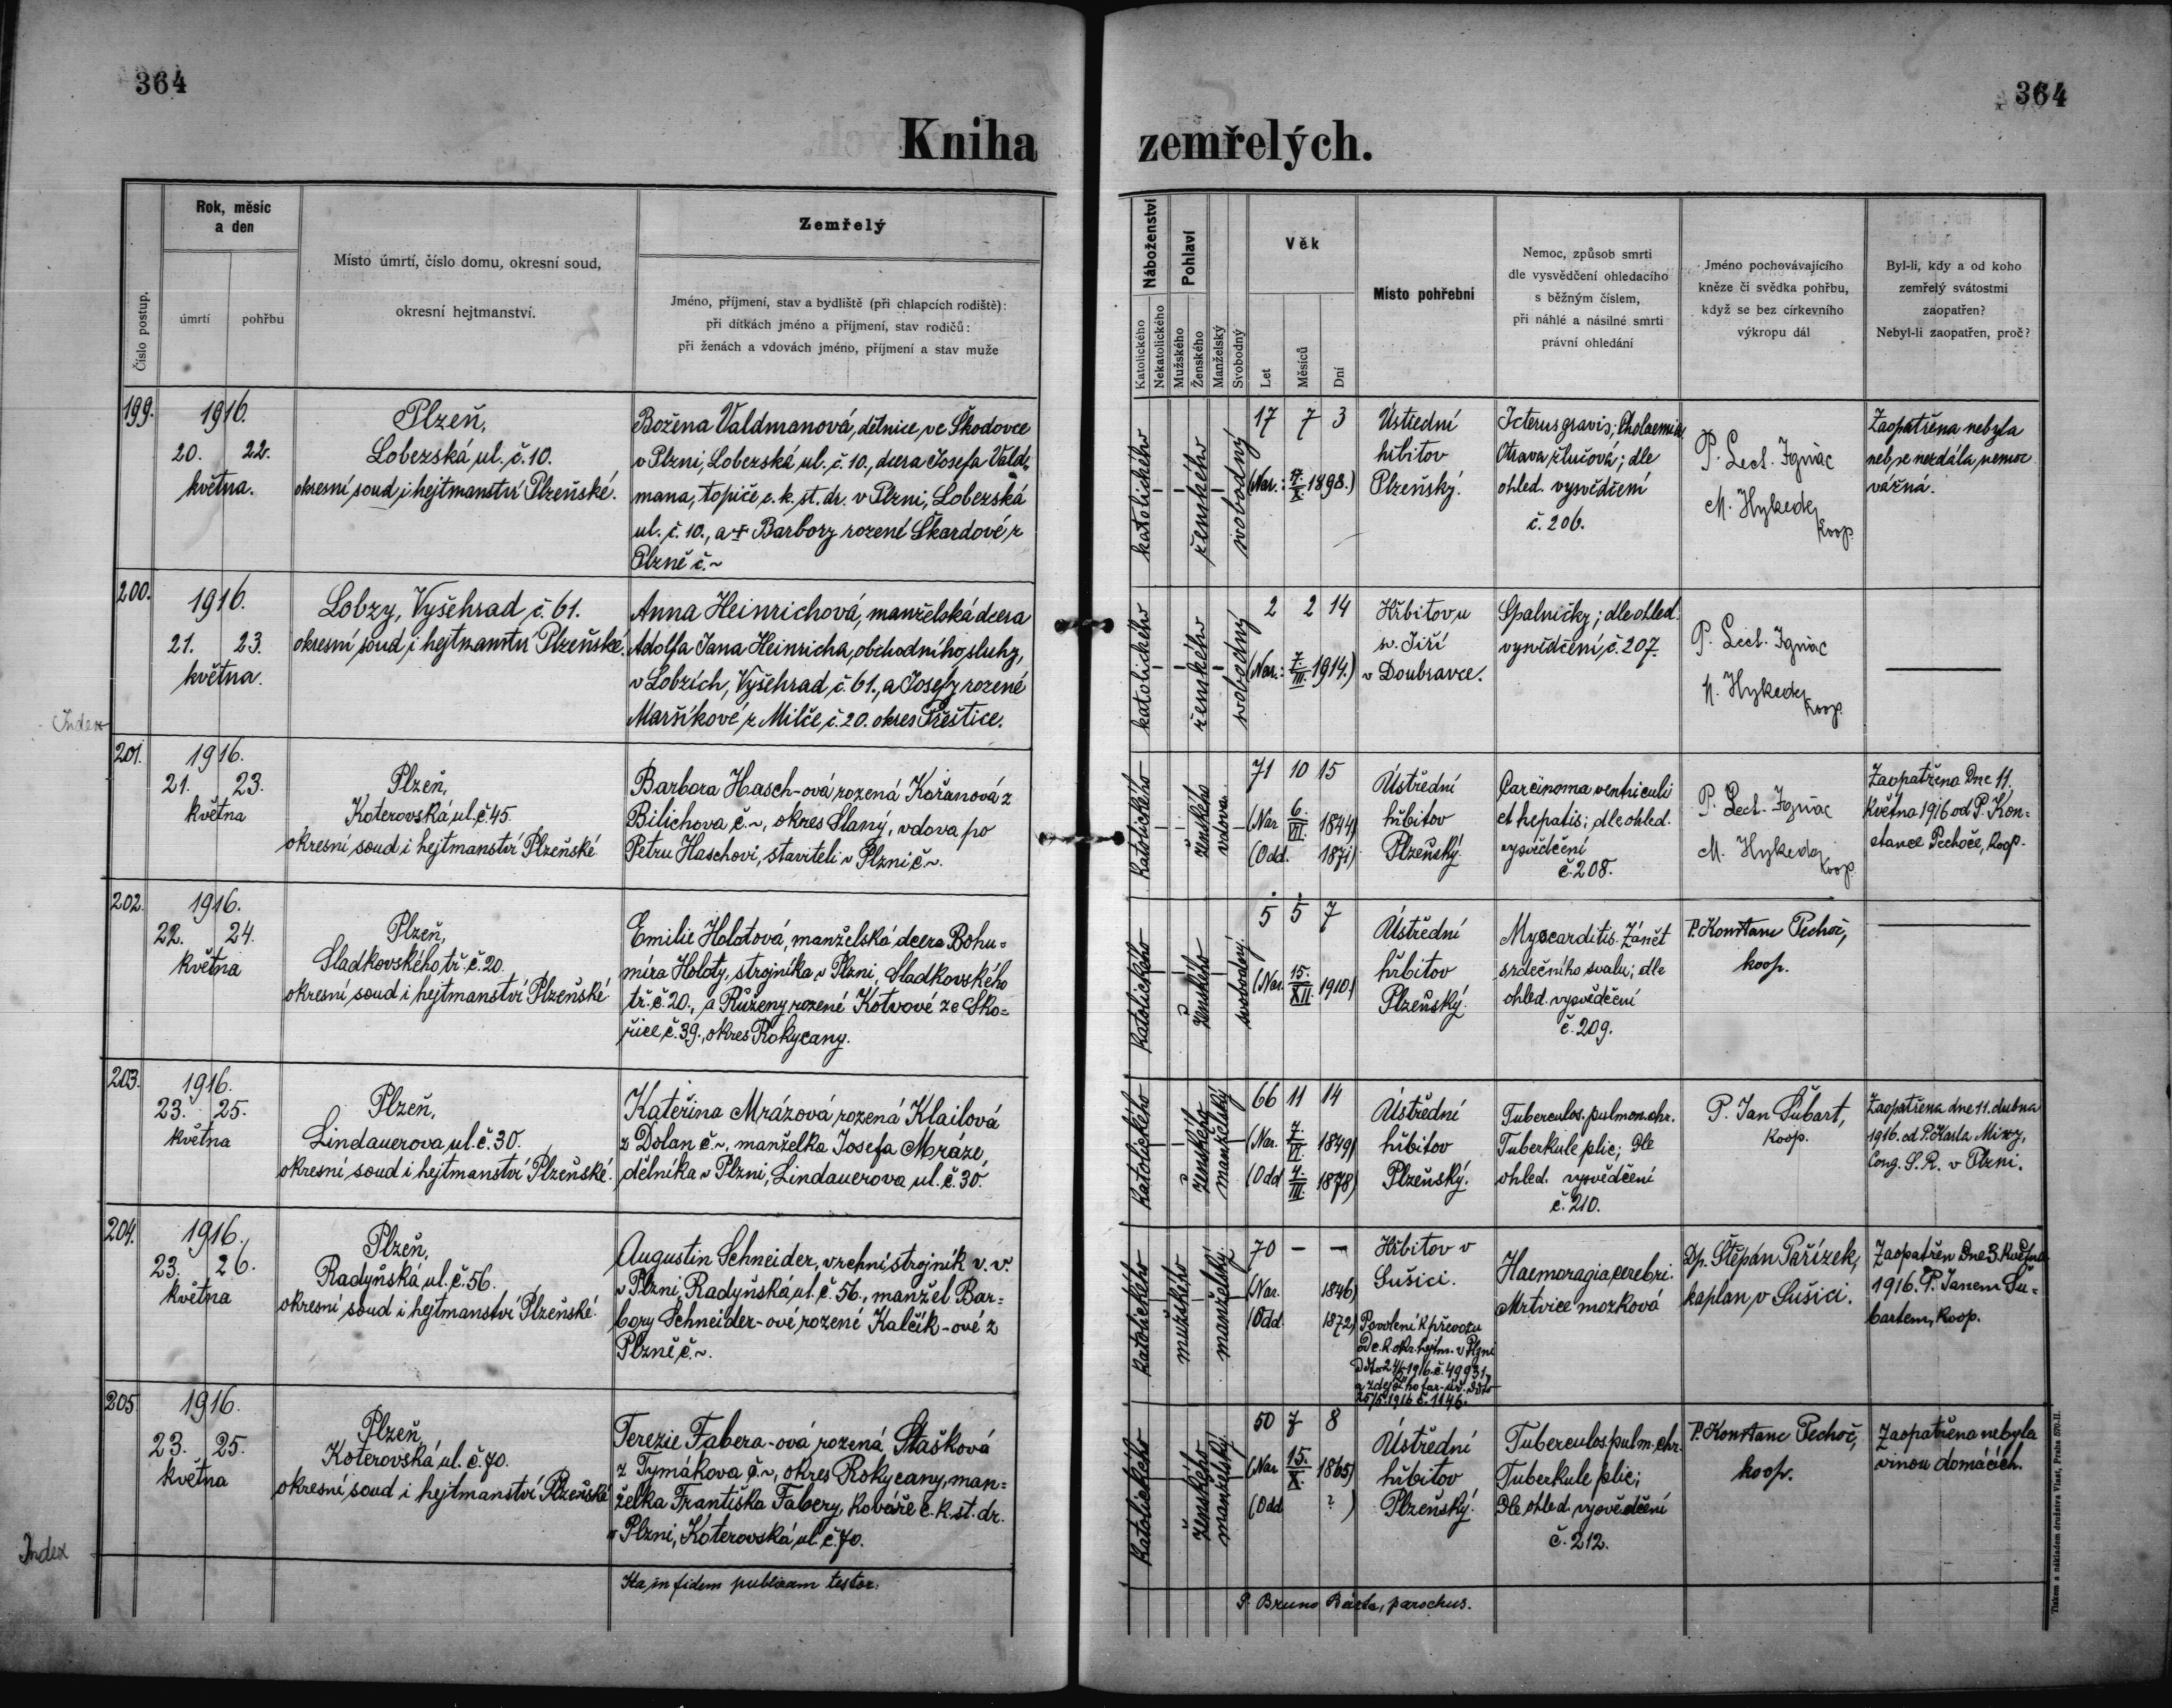 364
364
Kniha zemřelých.
Číslo postup.
Rok, měsíc
a den
úmrtí
pohřbu
Místo úmrtí, číslo domu, okresní soud,
okresní hejtmanství.
Zemřelý
Jméno, příjmení, stav a bydliště (při chlapcích rodiště):
při dítkách jméno a příjmení, stav rodičů:
při ženách a vdovách jméno, příjmení a stav muže
Náboženství
Katolického
Nekatolického
Pohlaví
Mužského
Ženského
Manželský
Svobodný
Věk
Let
Měsíců
Dní
Místo pohřební
Nemoc, způsob smrti
dle vysvědčení ohledacího
s běžným číslem,
při náhlé a násilné smrti
právní ohledání
Jméno pochovávajícího
kněze či svědka pohřbu,
když se bez církevního
výkropu dál
Byl-li, kdy a od koho
zemřelý svátostmi
zaopatřen?
Nebyl-li zaopatřen, proč?
199.
1916.
20. 22.
května.
Plzeň,
Lobezská ul. č. 10.
okresní soud i hejtmanství Plzeňské.
Božena Valdmanová, dělnice ve Škodovce
v Plzni, Lobezská ul. č. 10., dcera Josefa Vald-
mana, topiče c. k. st. dr. v Plzni, Lobezská
ul. č. 10., a + Barbory rozené Škardové z
Plzně č. ~
katolického
ženského
svobodný
17 7 3
(Nar.: 17./X. 1898.)
Ústřední
hřbitov
Plzeňský.
Icterus gravis; Cholaemia
Otrava žlučová; dle
ohled. vysvědčení
č. 206.
P. Lect. Ignác
M. Hykeda
koop.
Zaopatřena nebyla
neb se nezdála nemoc
vážná.
200.
1916.
21. 23.
května.
Lobzy, Vyšehrad č. 61.
okresní soud i hejtmanství Plzeňské.
Anna Heinrichová, manželská dcera
Adolfa Jana Heinricha, obchodního sluhy,
v Lobzích, Vyšehrad č. 61., a Josefy rozené
Maršíkové z Milče č. 20. okres Přeštice.
katolického
ženského
svobodný
2 2 14
(Nar.: 7./III. 1914.)
Hřbitov u
sv. Jiří
v Doubravce.
Spalničky; dle ohled.
vysvědčení č. 207.
P. Lect. Ignác
M. Hykeda
koop.
Index
201.
1916.
21. 23.
května
Plzeň,
Koterovská ul. č. 45.
okresní soud i hejtmanství Plzeňské
Barbora Hasch-ová rozená Kořanová z
Bilichova č. ~, okres Slaný, vdova po
Petru Haschovi, staviteli v Plzni č ~.
Katolického
ženského
vdova
71 10 15
(Nar. 6./VII. 1844)
(Odd. 1871)
Ústřední
hřbitov
Plzeňský.
Carcinoma ventriculi
et hepatis; dle ohled.
vysvědčení
č. 208.
P. Lect. Ignác
M. Hykeda
koop.
Zaopatřena dne 11.
května 1916 od P. Kon-
stance Pechoče, koop.
202.
1916.
22. 24.
května
Plzeň,
Sladkovského tř. č. 20.
okresní soud i hejtmanství Plzeňské
Emilie Holotová, manželská dcera Bohu-
míra Holoty, strojníka v Plzni, Sladkovského
tř. č. 20., a Růženy rozené Kotvové ze Sko-
řice č. 39., okres Rokycany.
Katolického
Ženského
svobodný.
5 5 7
(Nar. 15./XII. 1910)
Ústřední
hřbitov
Plzeňský.
Myocarditis. Zánět
srdečního svalu; dle
ohled. vysvědčení
č. 209.
P. Konstanc Pechoč,
koop.
203.
1916.
23. 25.
května
Plzeň,
Lindauerova ul. č. 30.
okresní soud i hejtmanství Plzeňské.
Kateřina Mrázová rozená Klailová
z Dolan č. ~, manželka Josefa Mráze,
dělníka v Plzni, Lindauerova ul. č. 30.
Katolického
Ženského
manželský
66 11 14
(Nar. 7./VI. 1849)
(Odd 4./III. 1878)
Ústřední
hřbitov
Plzeňský.
Tuberculos. pulmon. chr.
Tuberkule plic; Dle
ohled. vysvědčení
č. 210.
P. Jan Šubart,
koop.
Zaopatřena dne 11. dubna
1916. od P. Karla Mixy,
Cong. S. R. v Plzni.
204.
1916.
23. 26.
května
Plzeň,
Radyňská ul. č. 56.
okresní soud i hejtmanství Plzeňské.
Augustin Schneider, vrchní strojník v. v.
v Plzni, Radyňská ul. č. 56., manžel Bar-
bory Schneider-ové rozené Kalčík-ové z
Plzně č. ~.
Katolického
mužského
manželský.
70 — —
(Nar. 1846)
(Odd. 1872)
Hřbitov v
Sušici.
Povolení k převozu
od c. k. okr. hejtm. v Plzni
Ddto 24/5 1916. č. 49931,
a zdejšího far. úř. ddto
25/5. 1916 č. 1146.
Haemoragia cerebri.
Mrtvice mozková
Dp. Štěpán Pařízek,
kaplan v Sušici.
Zaopatřen Dne 3. května
1916. P. Janem Šu-
bartem, koop.
205.
1916.
23. 25.
května
Plzeň,
Koterovská ul. č. 70.
okresní soud i hejtmanství Plzeňské
Terezie Fabera-ová rozená Stašková
z Tymákova č. ~, okres Rokycany, man-
želka Františka Fabery, kováře c. k. st. dr.
v Plzni, Koterovská ul. č. 70.
Katolického
Ženského
manželský.
50 7 8
(Nar. 15./X. 1865)
(Odd ? )
Ústřední
hřbitov
Plzeňský.
Tuberculos. pulm. chr.
Tuberkule plic;
Dle ohled. vysvědčení
č. 212.
P. Konstanc Pechoč,
koop.
Zaopatřena nebyla
vinou domácích.
Index
Ita in fidem publicam testor.
P. Bruno Bárta, parochus.
Tiskem a nákladem družstva Vlast, Praha 570-II.